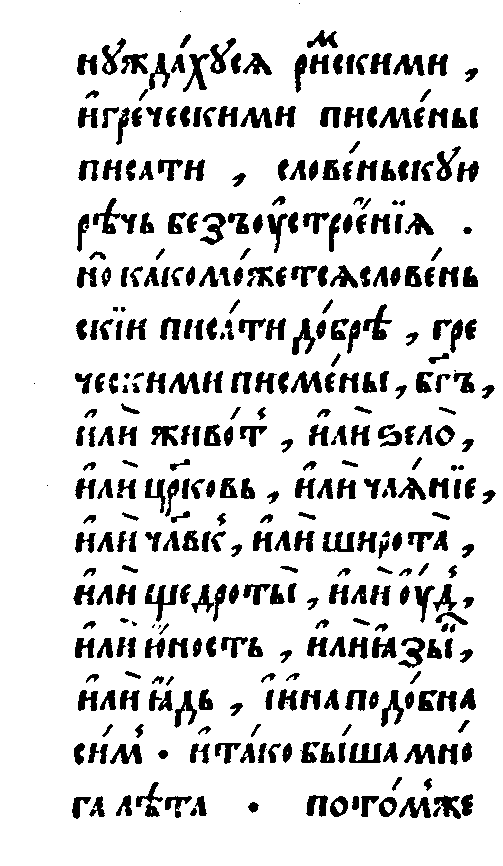 нꙋжда́хꙋсѧ ри́мскими ,
и҆гре́ческими писме́ны
писати , слове́ньскꙋю
рѣ́чь безъоу҆строе́нїѧ .
но҆ ка́комо́жетсѧслове́нь
скїи писа́ти до́брѣ , гре
ческими писме́ны , бг҃ъ ,
и҆лѝ живо́т , и҆лѝ ѕело̀ ,
и҆лѝ цр҃ковь , и҆лѝ чаѧ́нїе ,
и҆лѝ чл҃вк , и҆лѝ широта̀ ,
и҆лѝ щедроты̀ , и҆лѝ оу҆́д ,
и҆лѝ ю҆ность , и҆лѝ ꙗ҆зы́к ,
и҆лѝ ꙗ҆́дь , і҆и҆наподо́бна
си́м . и҆та́ко бы́ша мно́
га лѣ́та . пото́мже